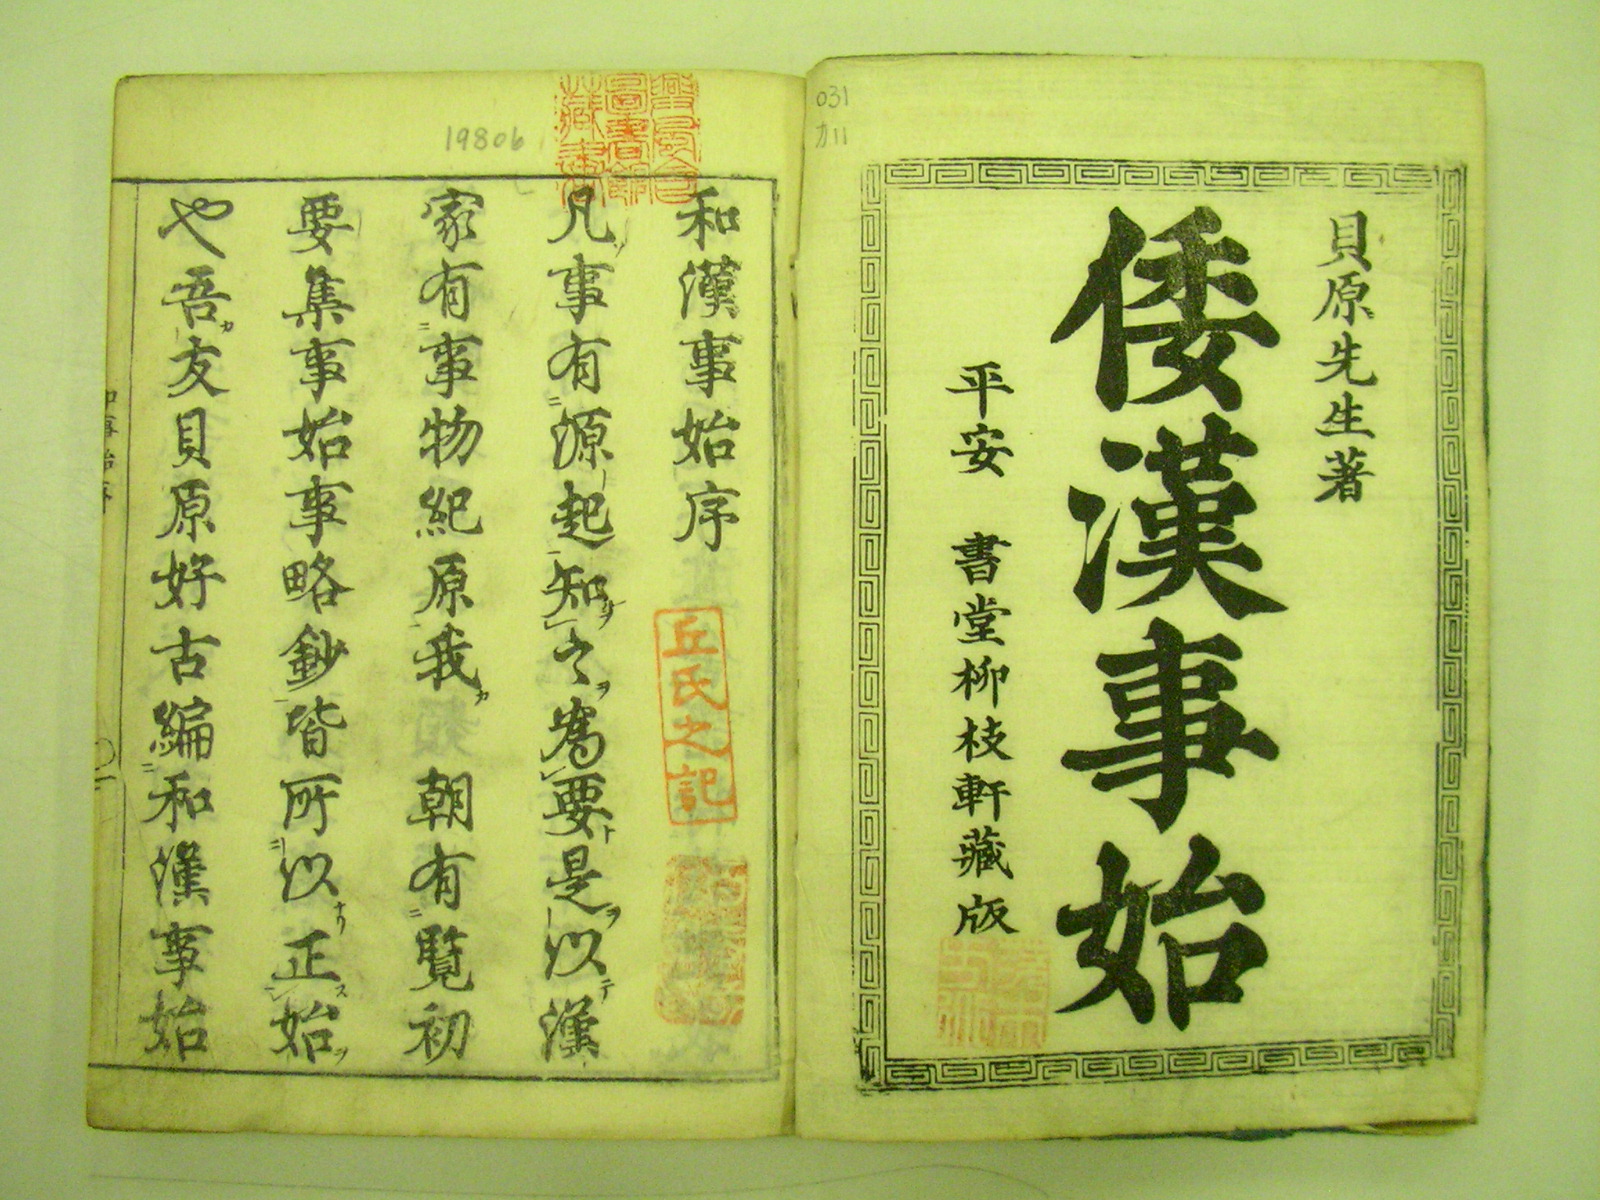 031
カ11
貝原先生著
倭漢事始
平安 書堂柳枝軒藏版
19806
和漢事始序
丘氏之記
凡事有源起知之爲要是以漢
家有事物紀原我 朝有覽初
要集事始事略鈔皆所以正始
也吾友貝原好古編和漢事始